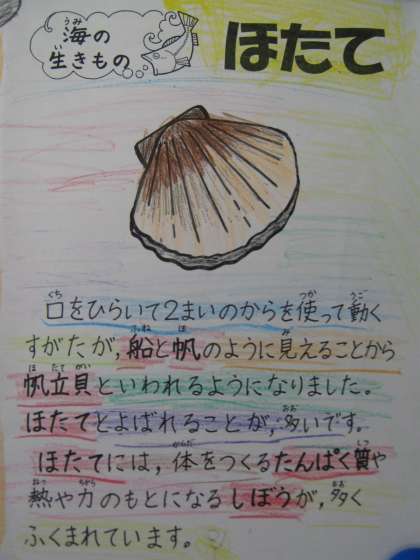 海の
生きもの
ほたて
口をひらいて2まいのからを使って動く
すがたが,船と帆のように見えることから
帆立貝といわれるようになりました。
ほたてとよばれることが,多いです。
ほたてには,体をつくるたんぱく質や
熱や力のもとになるしぼうが,多く
ふくまれています。